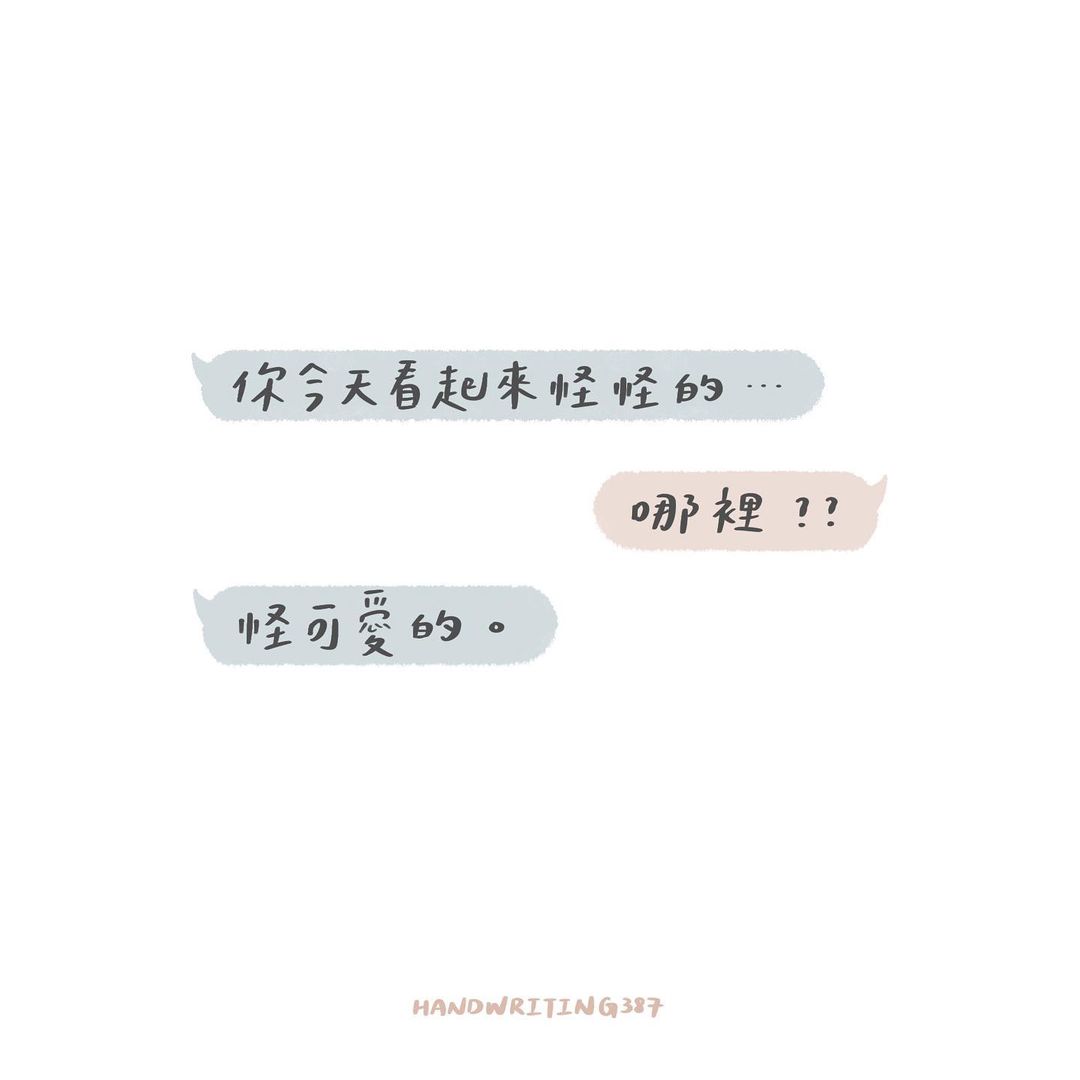 你今天看起來怪怪的…
哪裡??
怪可愛的。
HANDWRITING387